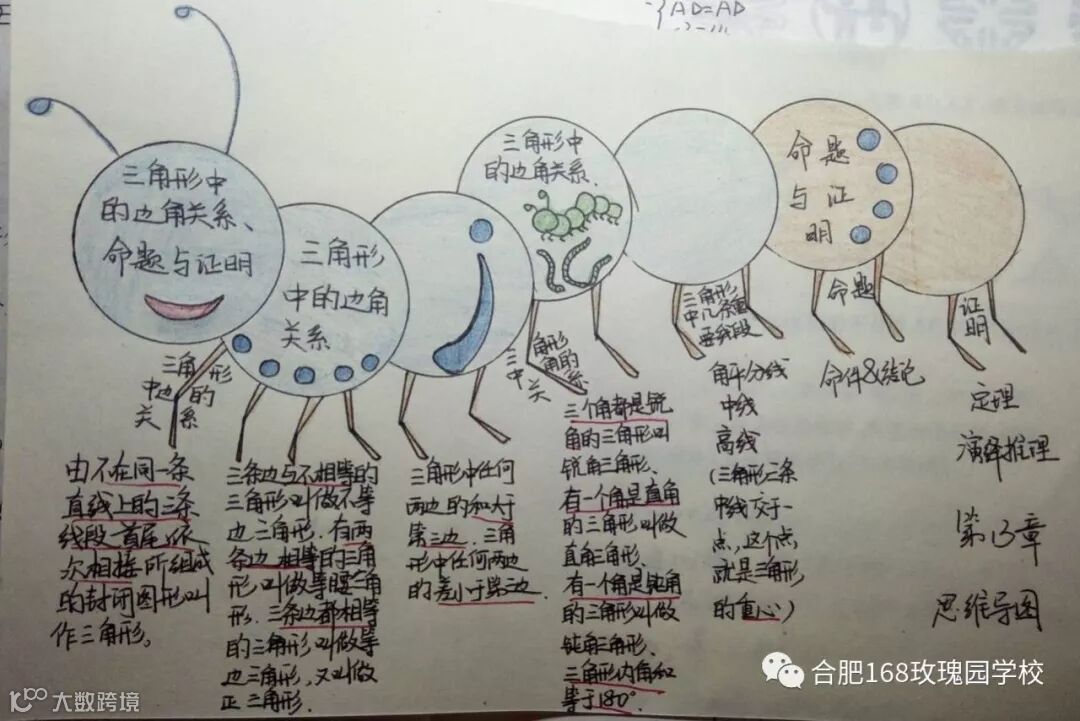 {AD=AD
三角形中
的边角关系、
命题与证明
三角形
中的边角
关系
三角形中
的边角关系.
命题
与证
明
三角形
中边的
关系
由不在同一条
直线上的三条
线段首尾依
次相接所组成
的封闭图形叫
作三角形。
三条边与不相等的
三角形叫做不等
边三角形.有两
条边相等的三角
形叫做等腰三角
形.三条边都相等
的三角形叫做等
边三角形,又叫做
正三角形.
三角形中任何
两边的和大于
第三边.三角
形中任何两边
的差小于第三边.
三角形
中角的
关系
三个角都是锐
角的三角形叫
锐角三角形.
有一个角是直角
的三角形叫做
直角三角形.
有一个角是钝角
的三角形叫做
钝角三角形.
三角形内角和
等于180°.
三角形
中几条重
要线段
角平分线
中线
高线
(三角形三条
中线交于一
点,这个点
就是三角形
的重心)
命题
命件&结论
证
明
定理
演绎推理
第13章
思维导图
合肥168玫瑰园学校
大数跨境